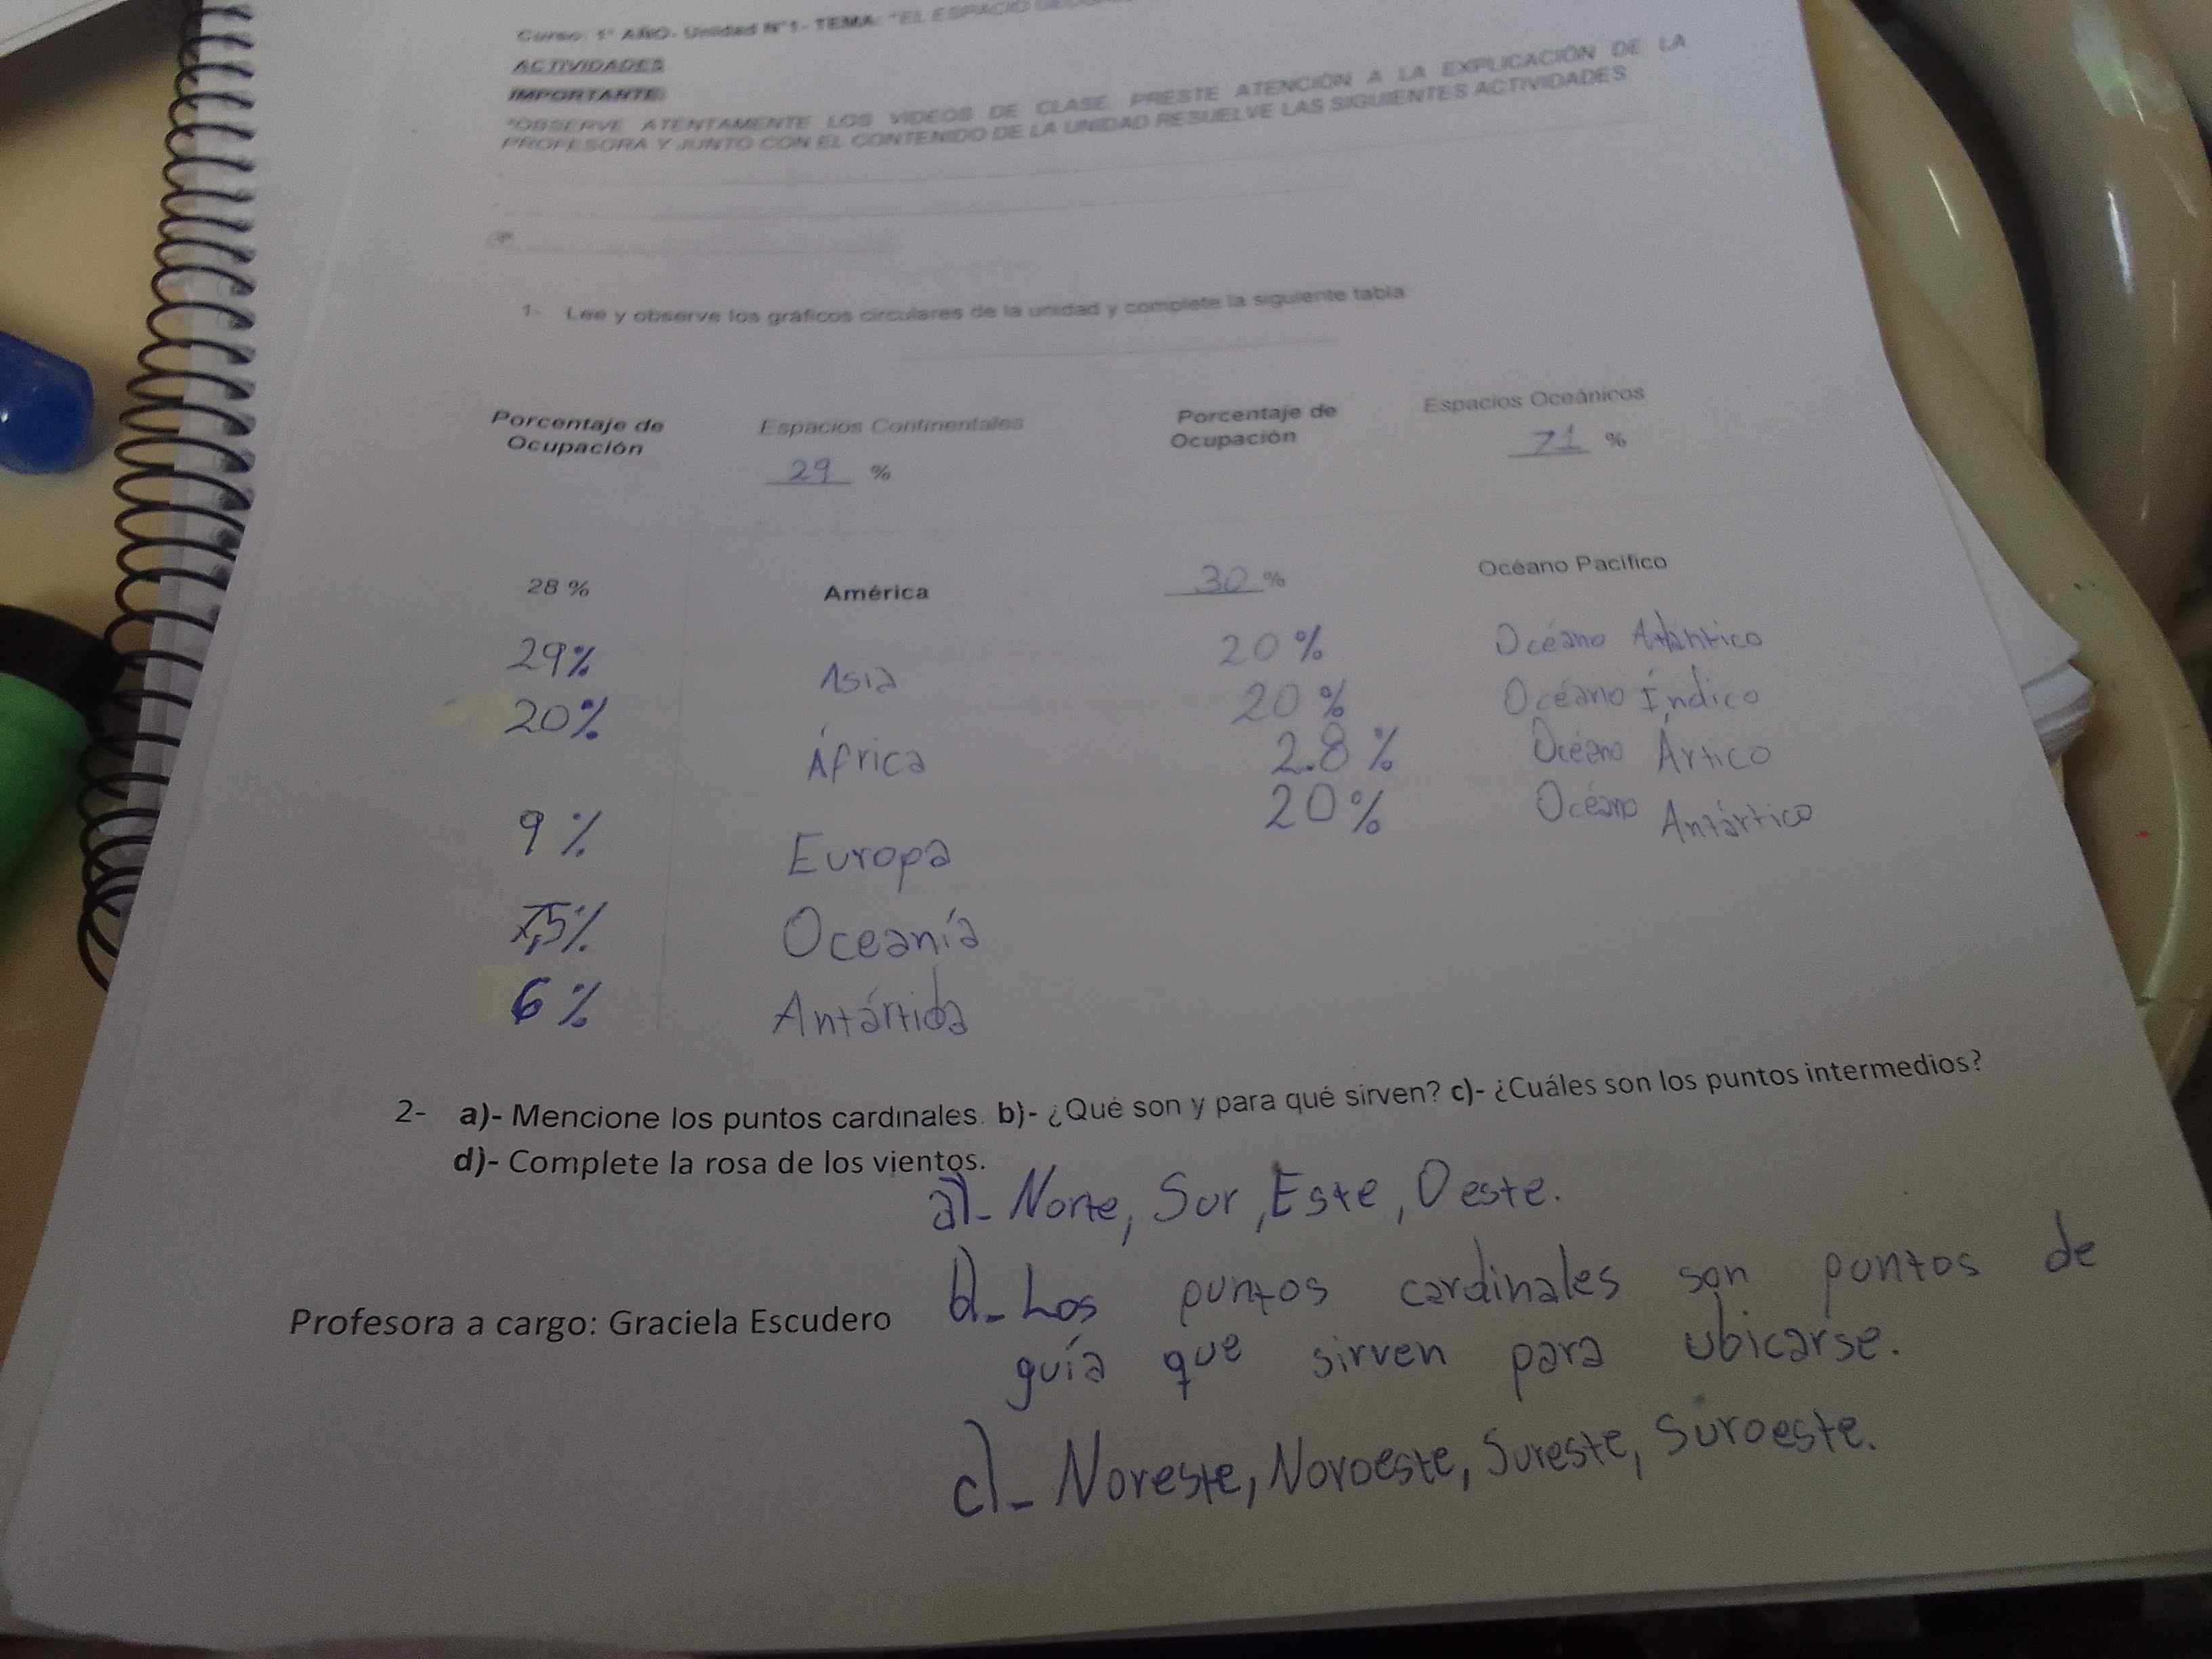 Curso: 1° AÑO- Unidad N°1- TEMA: "EL ESPACIO
ACTIVIDADES
IMPORTANTE:
*OBSERVE ATENTAMENTE LOS VIDEOS DE CLASE, PRESTE ATENCIÓN A LA EXPLICACIÓN DE LA
PROFESORA Y JUNTO CON EL CONTENIDO DE LA UNIDAD RESUELVE LAS SIGUIENTES ACTIVIDADES
1- Lee y observe los gráficos circulares de la unidad y complete la siguiente tabla
Porcentaje de Espacios Continentales Porcentaje de Espacios Oceánicos
Ocupación 29 % Ocupación 71 %
28 % América 30 % Océano Pacífico
29% Asia 20% Océano Atlántico
20% África 20% Océano Índico
2.8% Océano Ártico
9% Europa 20% Océano Antártico
7,5% Oceanía
6% Antártida
2- a)- Mencione los puntos cardinales. b)- ¿Qué son y para qué sirven? c)- ¿Cuáles son los puntos intermedios?
d)- Complete la rosa de los vientos.
a)- Norte, Sur, Este, Oeste.
b)- Los puntos cardinales son puntos de
guía que sirven para ubicarse.
Profesora a cargo: Graciela Escudero
c)- Noreste, Noroeste, Sureste, Suroeste.